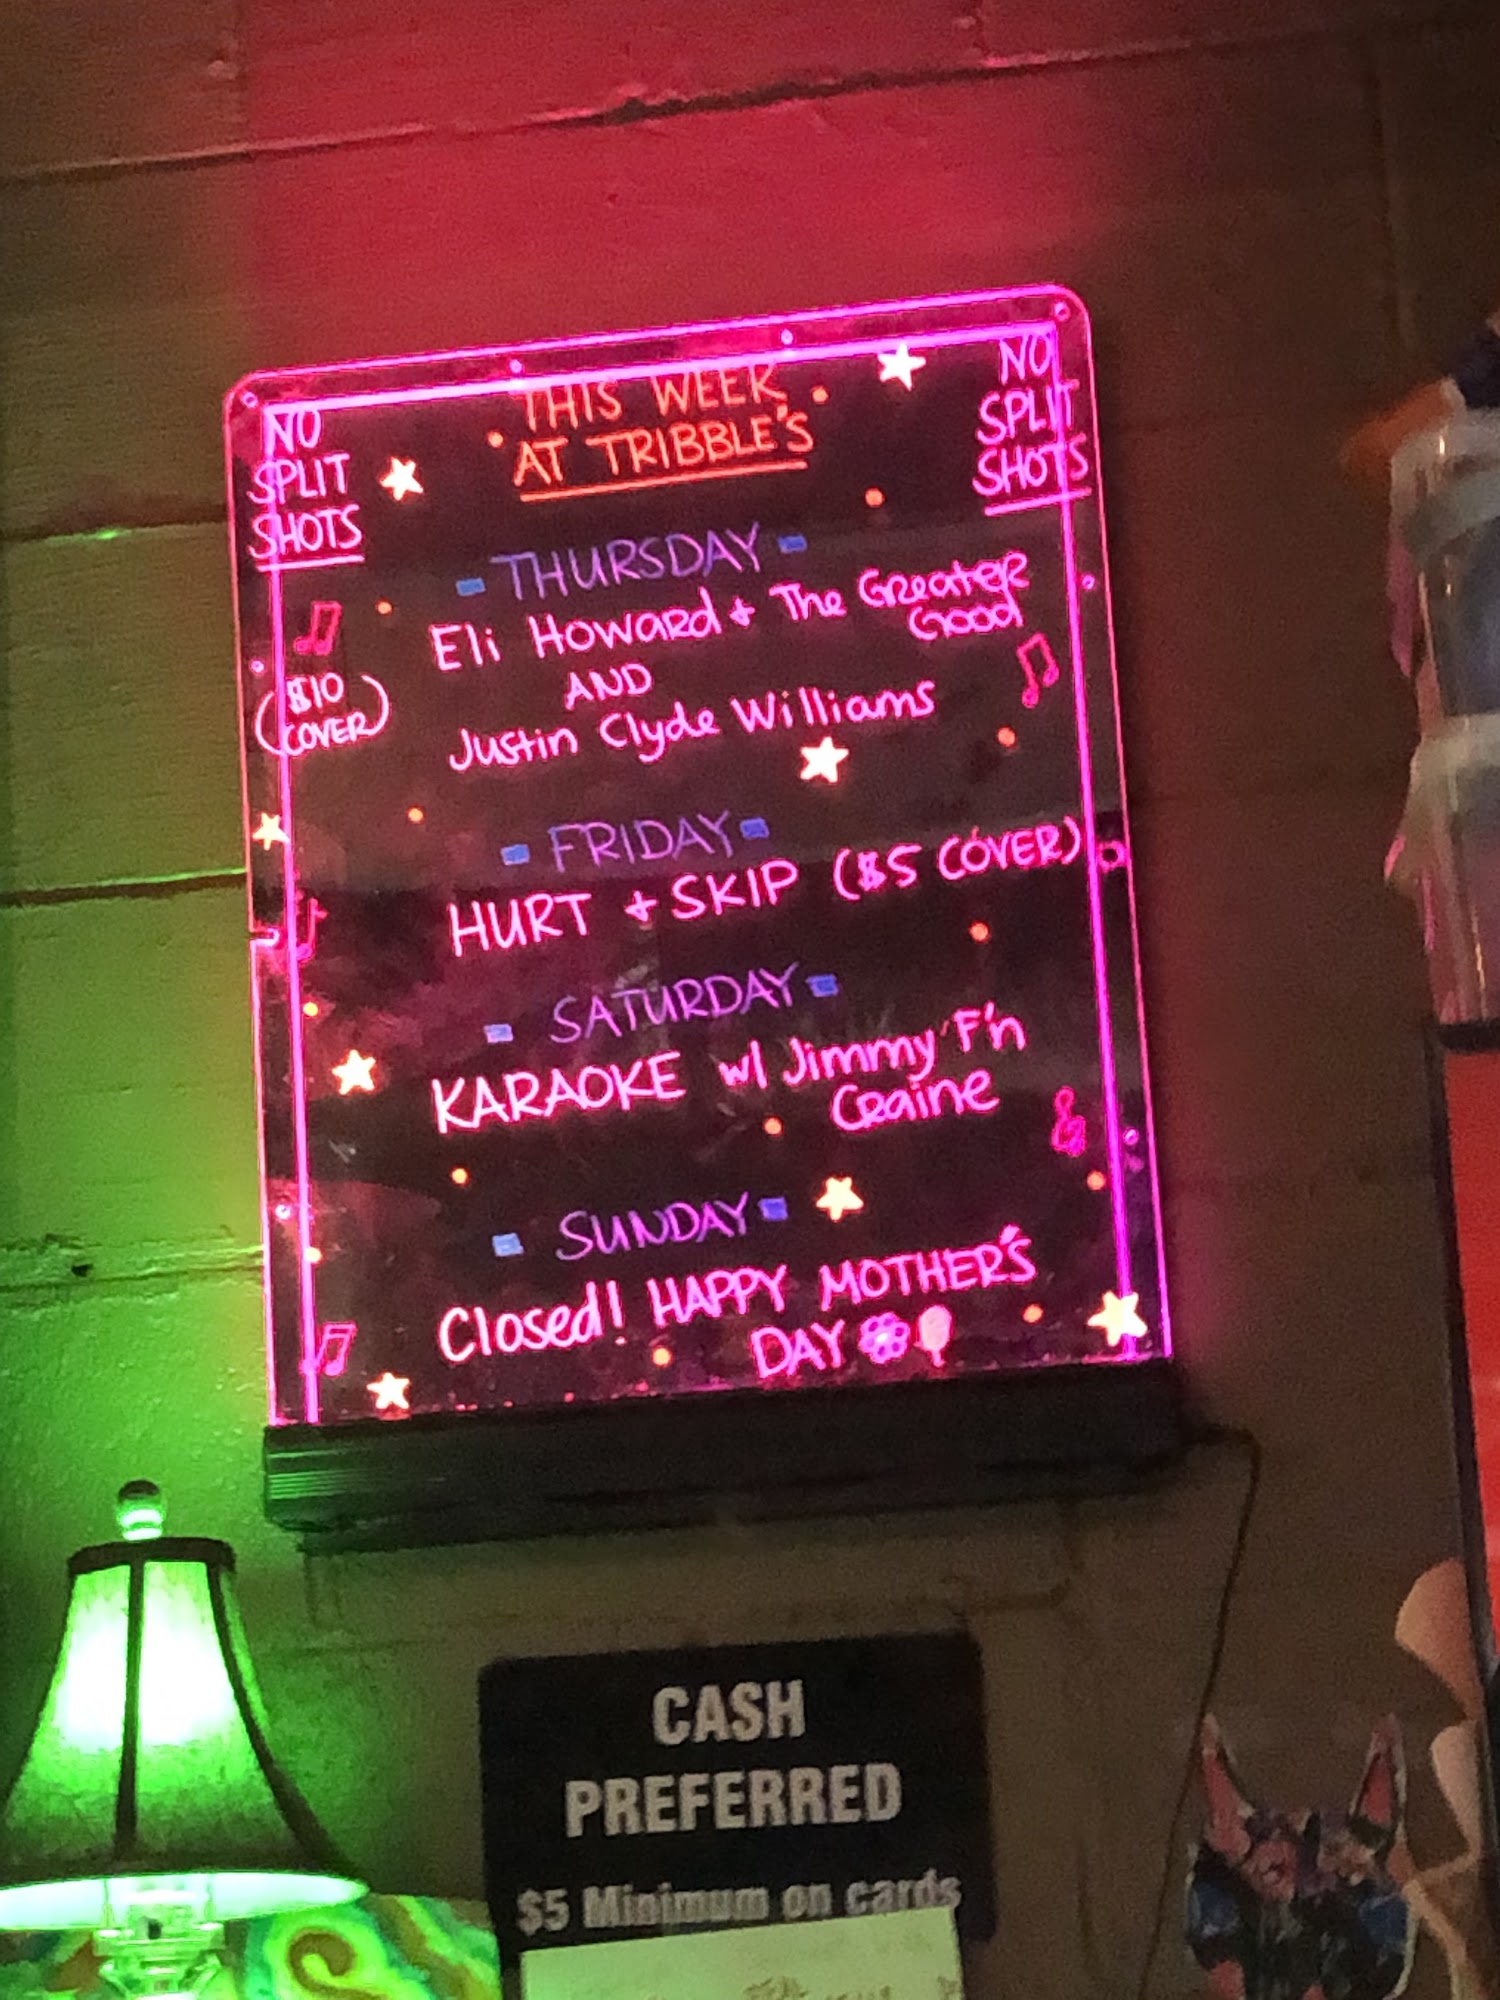 NO
SPLIT
SHOTS
THIS WEEK
AT TRIBBLE'S
NO
SPLIT
SHOTS
THURSDAY
Eli Howard + The Greater
Good
AND
Justin Clyde Williams
($10
COVER)
FRIDAY
HURT + SKIP ($5 COVER)
SATURDAY
KARAOKE w/ Jimmy F'n
Craine
SUNDAY
Closed! HAPPY MOTHER'S
DAY
CASH
PREFERRED
$5 Minimum on cards